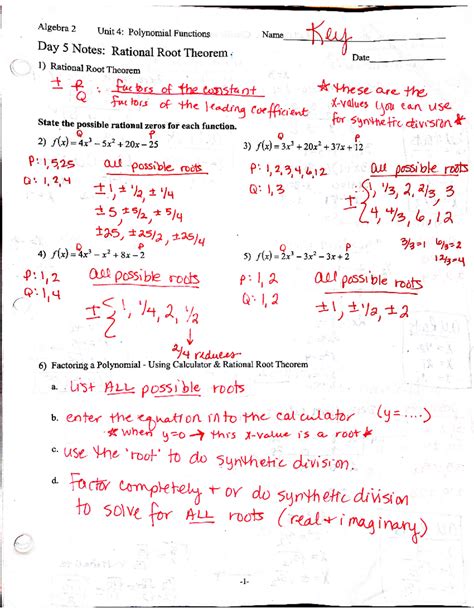 Algebra 2 Unit 4: Polynomial Functions Name Key
Day 5 Notes: Rational Root Theorem Date
1) Rational Root Theorem
± P/Q : factors of the constant / factors of the leading coefficient
* these are the
x-values you can use
for synthetic division *
State the possible rational zeros for each function.
2) f(x) = 4x³ – 5x² + 20x – 25
Q P
P: 1,5,25 all possible roots
Q: 1,2,4
±1, ±1/2, ±1/4
±5, ±5/2, ±5/4
±25, ±25/2, ±25/4
3) f(x) = 3x³ + 20x² + 37x + 12
Q P
P: 1,2,3,4,6,12 all possible roots
Q: 1,3
± {1, 1/3, 2, 2/3, 3
4, 4/3, 6, 12
3/3=1 6/3=2
12/3=4
4) f(x) = 4x³ – x² + 8x – 2
Q P
P: 1,2 all possible roots
Q: 1,4
± {1, 1/4, 2, 1/2
2/4 reduces
5) f(x) = 2x³ – 3x² – 3x + 2
Q P
P: 1,2 all possible roots
Q: 1,2
±1, ±1/2, ±2
6) Factoring a Polynomial - Using Calculator & Rational Root Theorem
a. List ALL possible roots
b. enter the equation into the calculator (y=....)
* when y=0 → this x-value is a root *
c. use the 'root' to do synthetic division.
d. Factor completely + or do synthetic division
to solve for ALL roots (real + imaginary)
-1-